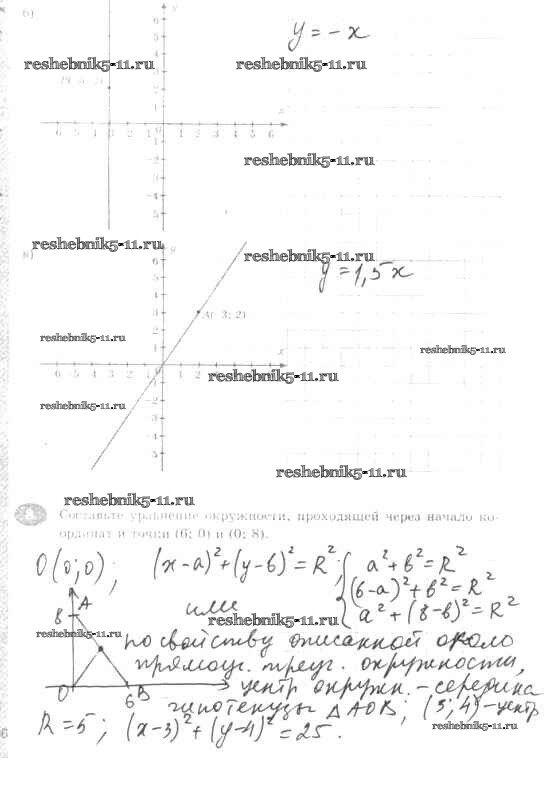 б)
y = -x
reshebnik5-11.ru reshebnik5-11.ru
reshebnik5-11.ru
reshebnik5-11.ru
в)
reshebnik5-11.ru
y = 1,5x
A(-3; 2)
reshebnik5-11.ru
reshebnik5-11.ru
reshebnik5-11.ru
reshebnik5-11.ru
reshebnik5-11.ru
reshebnik5-11.ru
Составьте уравнение окружности, проходящей через начало ко-
ординат и точки (6; 0) и (0; 8).
O(0;0); (x-a)²+(y-b)²=R²; { a²+b²=R²
(6-a)²+b²=R²
a²+(8-b)²=R²
или
reshebnik5-11.ru
8 A
reshebnik5-11.ru
по свойству описанной около
прямоуг. треуг. окружности,
O 6 B центр окружн. - середина
гипотенузы ΔAOB; (3;4)-центр
R=5; (x-3)²+(y-4)²=25.
reshebnik5-11.ru